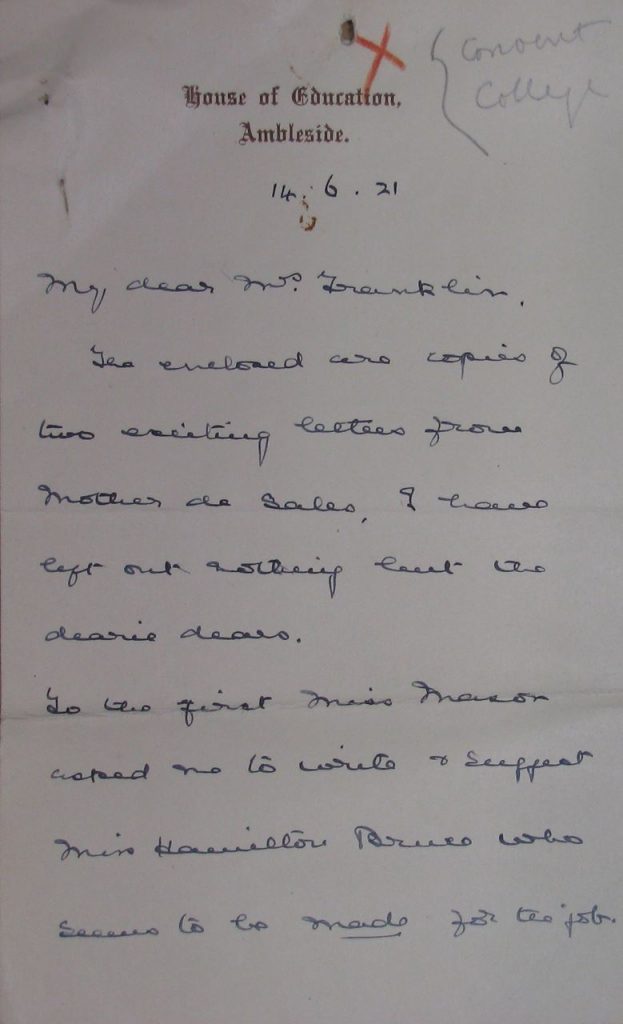 Convent
College
House of Education,
Ambleside.
14. 6. 21
My dear Mrs. Franklin,
The enclosed are copies of
two exciting letters from
Mother de Sales, I have
left out nothing but the
dearie dears.
To the first Miss Mason
asked me to write & suggest
Miss Hamilton Bruce who
seems to be made for the job.